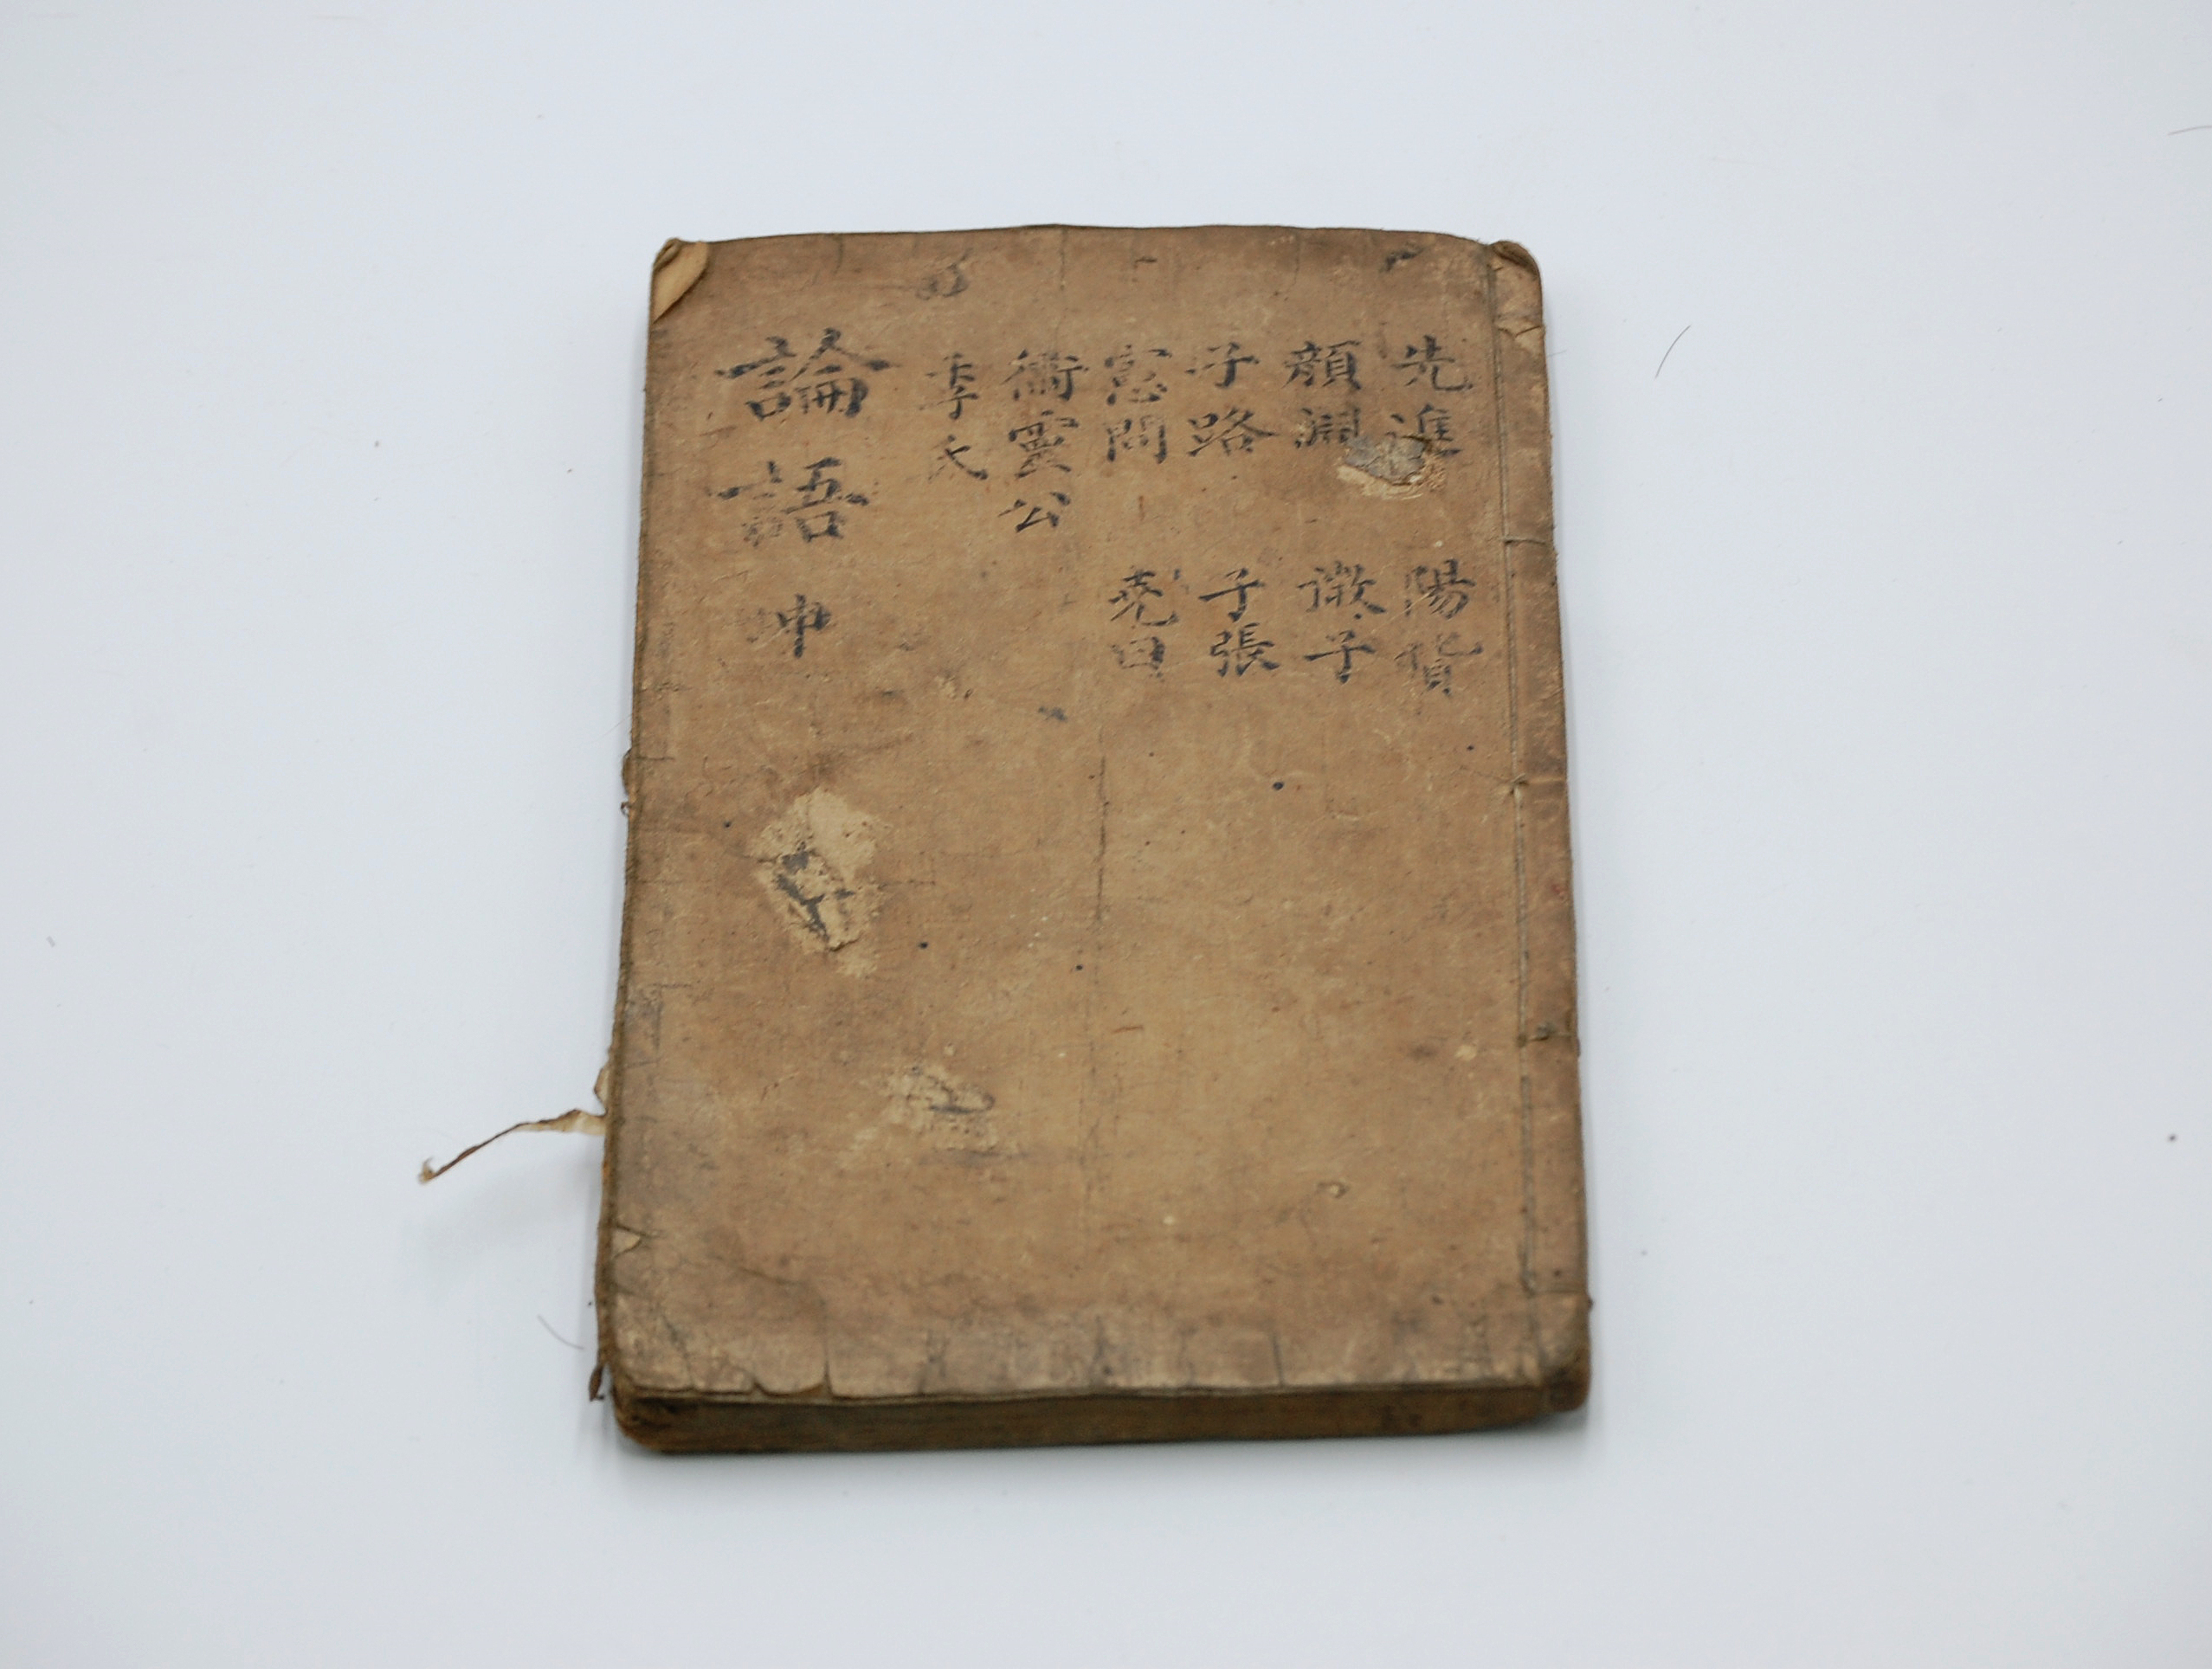 先進
顔淵
子路
憲問
衛靈公
季氏
陽貨
微子
子張
尭曰
論語 坤